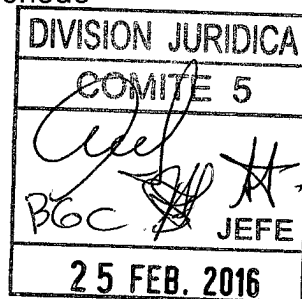 DIVISION JURIDICA
COMITE 5
BGC
JEFE
25 FEB. 2016